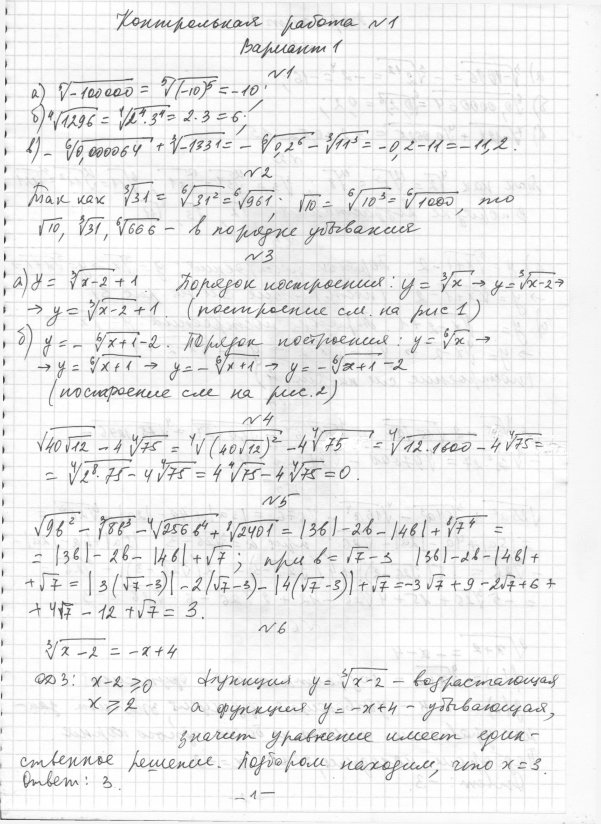 Контрольная работа №1
Вариант 1
№1
а) ⁵√-100000 = ⁵√(-10)⁵ = -10;
б) ⁴√1296 = ⁴√2⁴·3⁴ = 2·3 = 6;
в) - ⁶√0,000064 + ³√-1331 = - ⁶√0,2⁶ - ³√11³ = -0,2-11 = -11,2.
№2
Так как ³√31 = ⁶√31² = ⁶√961; √10 = ⁶√10³ = ⁶√1000, то
√10, ³√31, ⁶√666 - в порядке убывания
№3
а) y = ³√x-2 + 1. Порядок построения: y = ³√x → y = ³√x-2 →
→ y = ³√x-2 + 1 (построение см. на рис 1)
б) y = - ⁶√x+1 - 2. Порядок построения: y = ⁶√x →
→ y = ⁶√x+1 → y = - ⁶√x+1 → y = - ⁶√x+1 - 2
(построение см на рис. 2)
№4
√40√12 - 4 ⁴√75 = ⁴√(40√12)² - 4 ⁴√75 = ⁴√12·1600 - 4 ⁴√75 =
= ⁴√2⁸·75 - 4 ⁴√75 = 4 ⁴√75 - 4 ⁴√75 = 0.
№5
√9b² - ³√8b³ - ⁴√256b⁴ + ⁸√2401 = |3b| - 2b - |4b| + ⁸√7⁴ =
= |3b| - 2b - |4b| + √7; при b = √7 - 3 |3b| - 2b - |4b| +
+ √7 = |3(√7-3)| - 2(√7-3) - |4(√7-3)| + √7 = -3√7 + 9 - 2√7 + 6 +
+ 4√7 - 12 + √7 = 3.
№6
³√x-2 = -x+4
ОДЗ: x-2 ⩾ 0 Функция y = ³√x-2 - возрастающая
x ⩾ 2 а функция y = -x+4 - убывающая,
значит уравнение имеет един-
ственное решение. Подбором находим, что x = 3.
Ответ: 3.
- 1 -